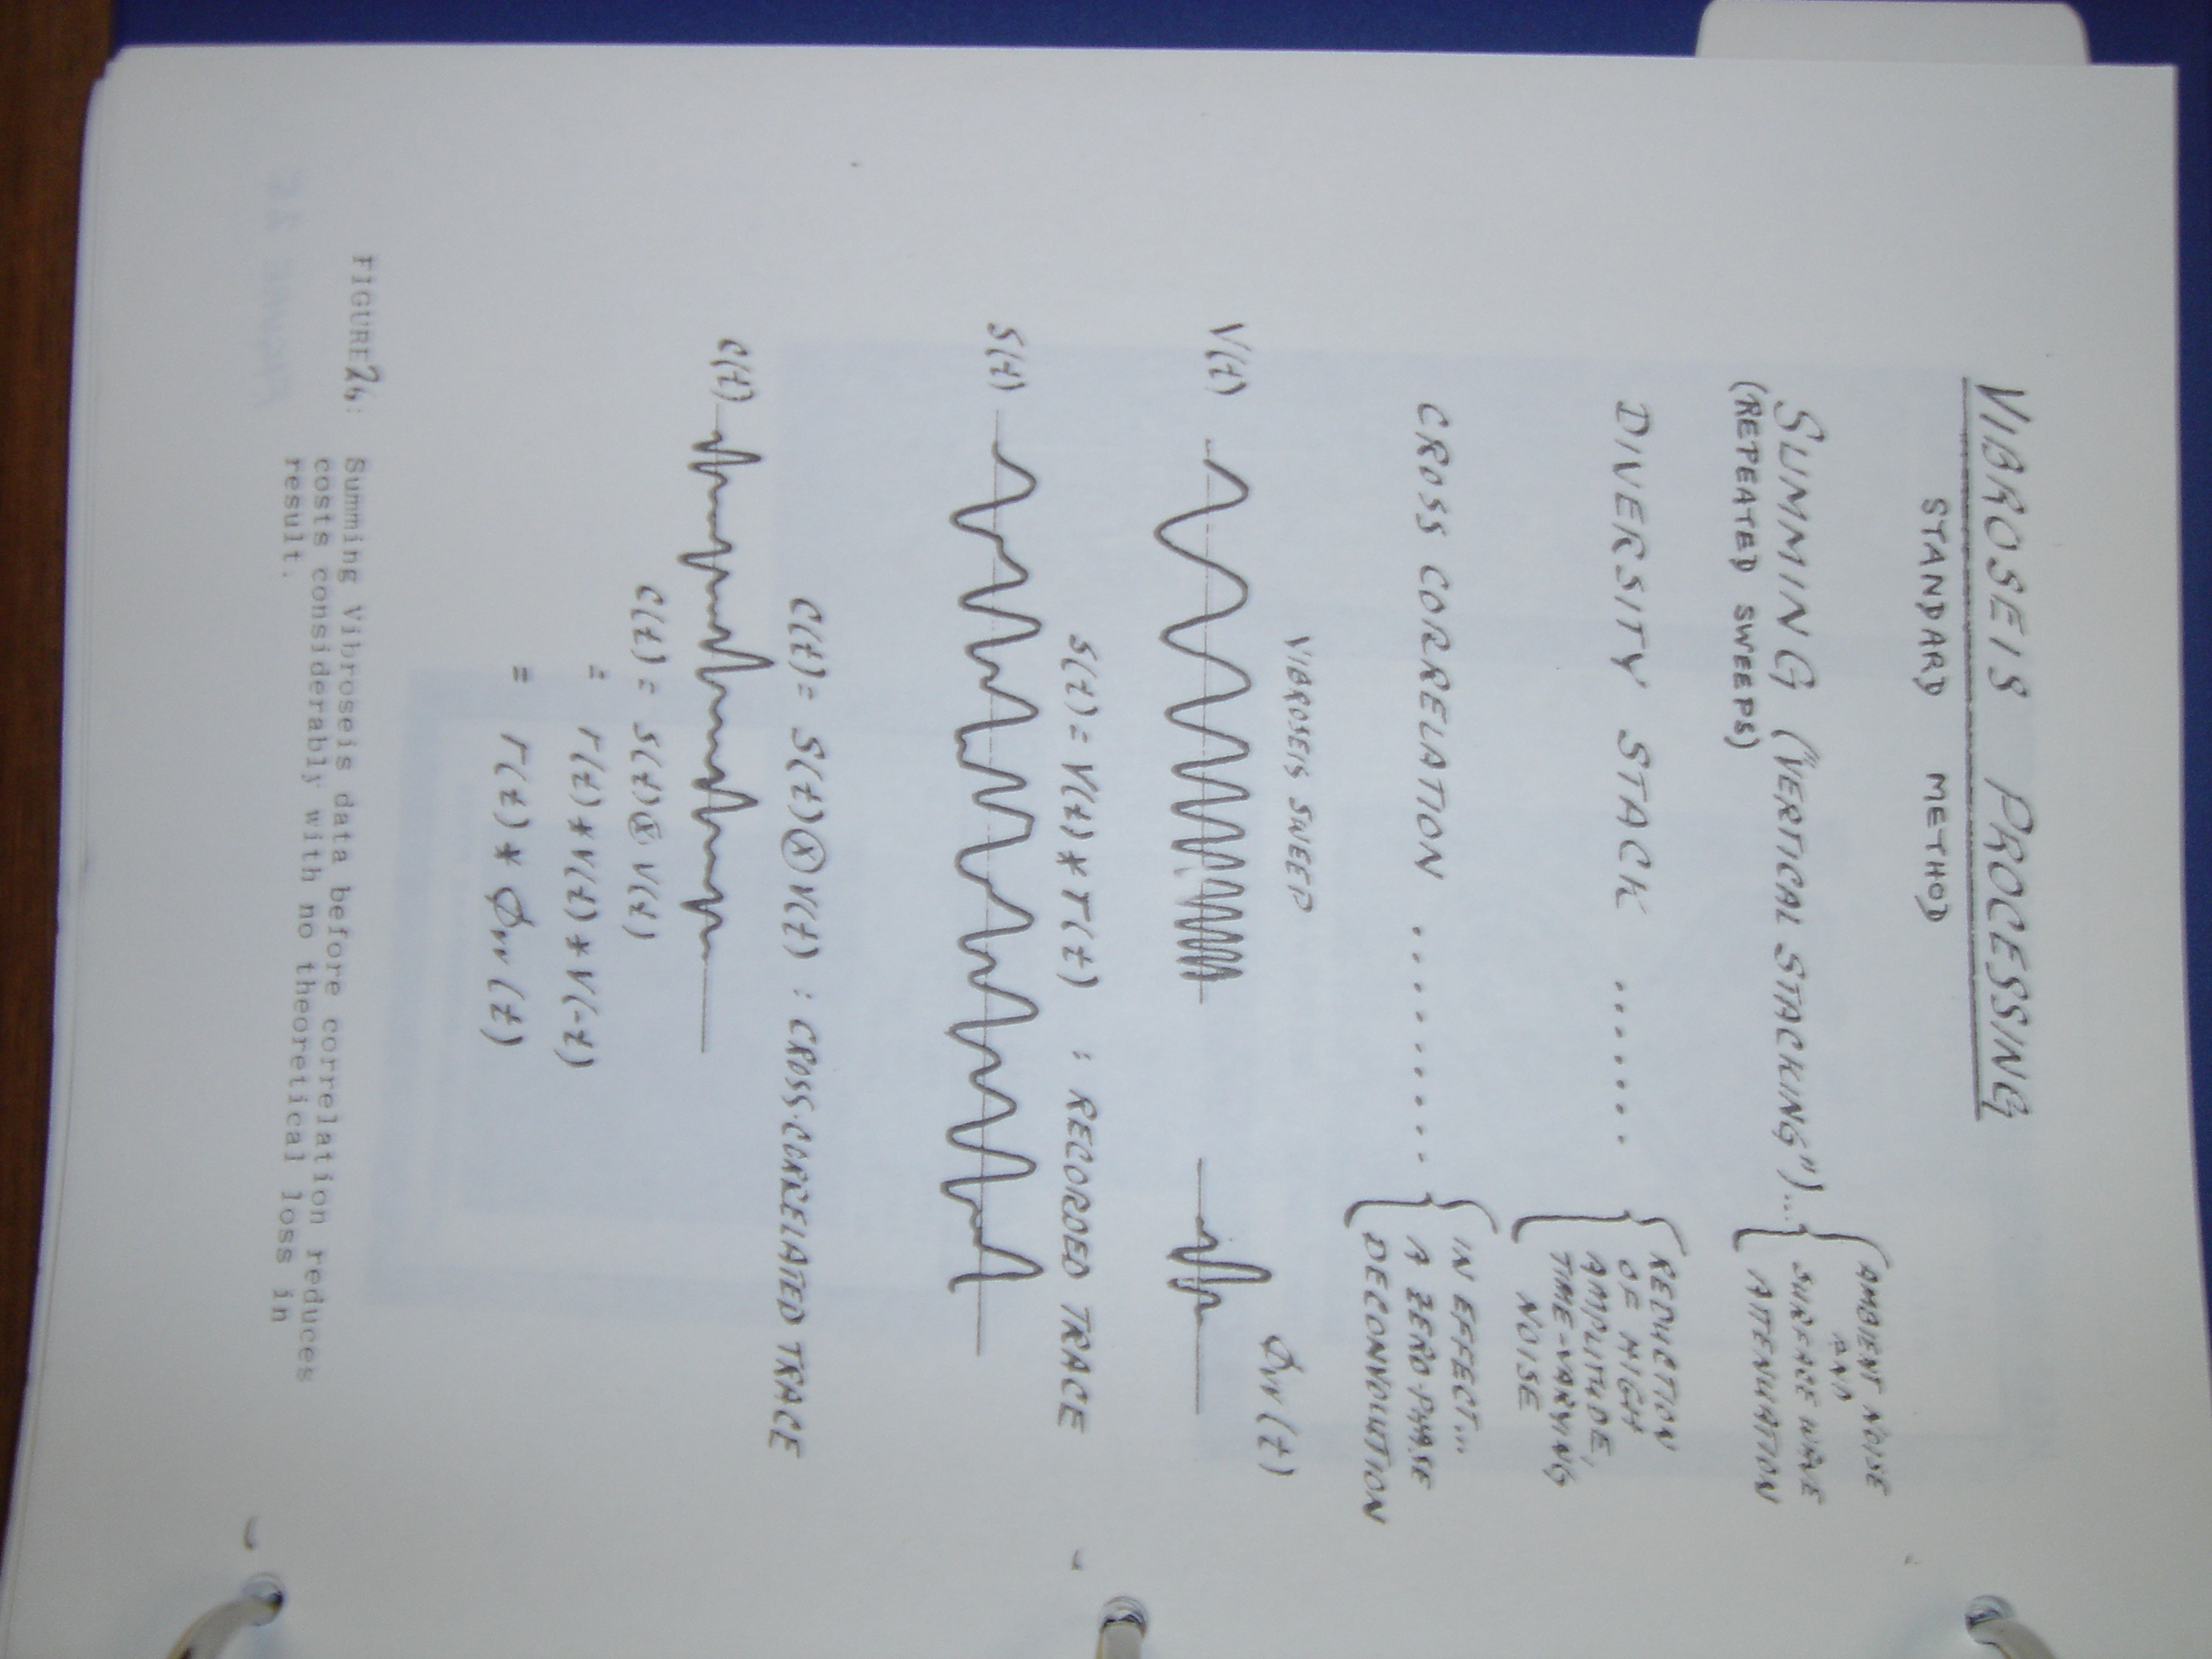 VIBROSEIS PROCESSING
STANDARD METHOD
SUMMING ("VERTICAL STACKING")...
(REPEATED SWEEPS)
AMBIENT NOISE
AND
SURFACE WAVE
ATTENUATION
DIVERSITY STACK .......
REDUCTION
OF HIGH
AMPLITUDE,
TIME-VARYING
NOISE
CROSS CORRELATION .........
IN EFFECT...
A ZERO-PHASE
DECONVOLUTION
VIBROSEIS SWEEP
V(t)
Φvv(t)
S(t) = V(t) * r(t) : RECORDED TRACE
S(t)
C(t) = S(t) ⊗ V(t) : CROSS-CORRELATED TRACE
C(t)
C(t) = S(t) ⊗ V(t)
= r(t) * V(t) * V(-t)
= r(t) * Φvv(t)
FIGURE 24: Summing Vibroseis data before correlation reduces
costs considerably with no theoretical loss in
result.